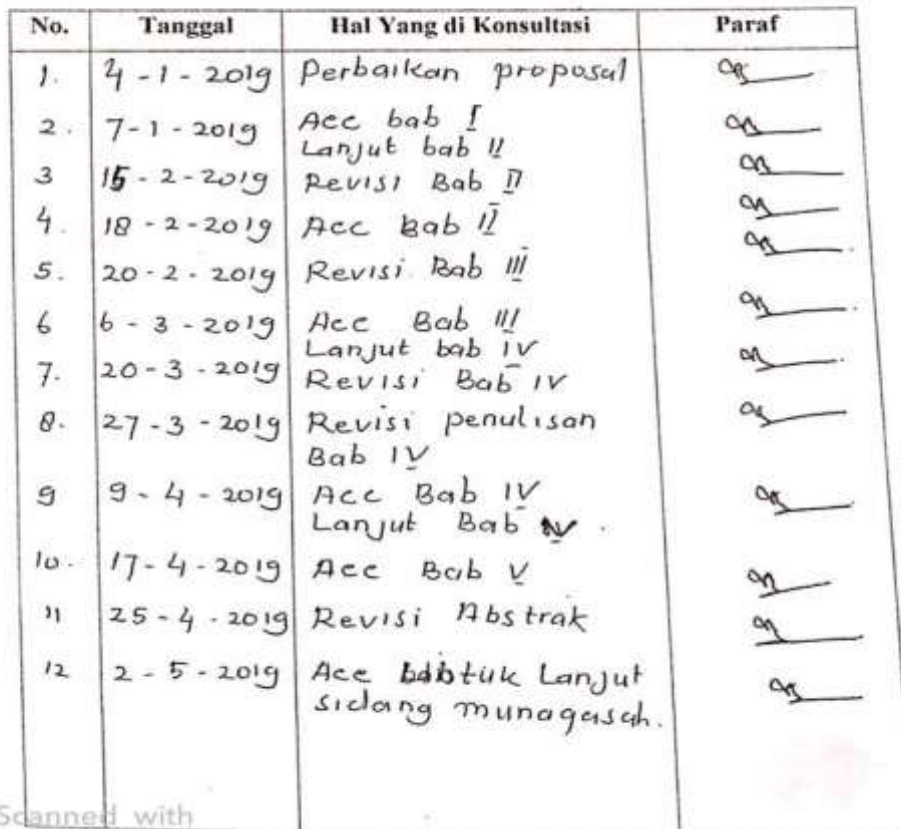 No. Tanggal Hal Yang di Konsultasi Paraf
1. 4-1-2019 Perbaikan proposal
2. 7-1-2019 Acc bab I
Lanjut bab II
3 15-2-2019 Revisi Bab II
4. 18-2-2019 Acc Bab II
5. 20-2-2019 Revisi Bab III
6 6-3-2019 Acc Bab III
Lanjut bab IV
7. 20-3-2019 Revisi Bab IV
8. 27-3-2019 Revisi penulisan
Bab IV
9 9-4-2019 Acc Bab IV
Lanjut Bab V.
10. 17-4-2019 Acc Bab V
11 25-4-2019 Revisi Abstrak
12 2-5-2019 Acc Lanjut
sidang munaqasah.
Scanned with